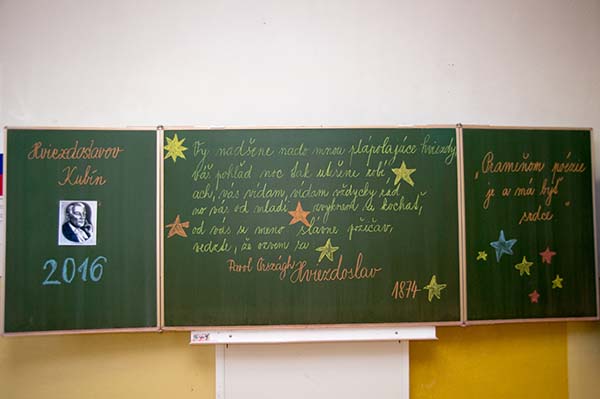 Hviezdoslavov
Kubín
2016
Vy nadšene nado mnou plápolajúce hviezdy,
Váš pohľad noc tak utešene robí
ach, vás vídam, vídam vždycky rád
no vás od mladi zvykom sa kochať,
od vás si meno slávne požičav,
vedzte, že ozvem sa
Pavol Országh Hviezdoslav
1874
"Prameňom poézie
je a má byť
srdce"